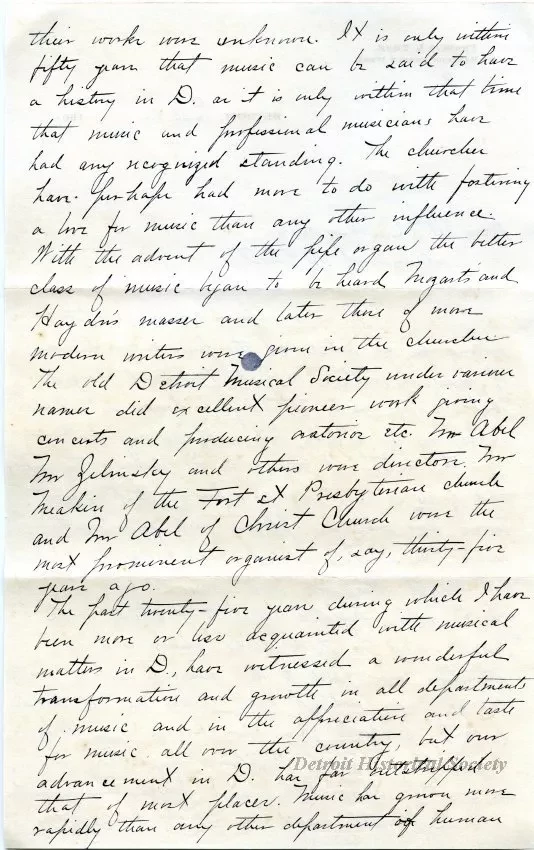 their works were unknown. It is only within
fifty years that music can be said to have
a history in D. as it is only within that time
that music and professional musicians have
had any recognized standing. The churches
have perhaps had more to do with fostering
a love for music than any other influence.
With the advent of the pipe organ the better
class of music began to be heard Mozart's and
Haydn's masses and later those of more
modern writers were given in the churches
The old Detroit Musical Society under various
names did excellent pioneer work giving
concerts and producing oratorios etc. Mr Abel
Mr Zelinsky and others were directors. Mr
Meakin of the Fort St Presbyterian church
and Mr Abel of Christ Church were the
most prominent organist of, say, thirty-five
years ago.
The past twenty-five years during which I have
been more or less acquainted with musical
matters in D., have witnessed a wonderful
transformation and growth in all departments
of music and in the appreciation and taste
for music all over the country, but our
advancement in D. has far outstripped
that of most places. Music has grown more
rapidly than any other department of human
Detroit Historical Society